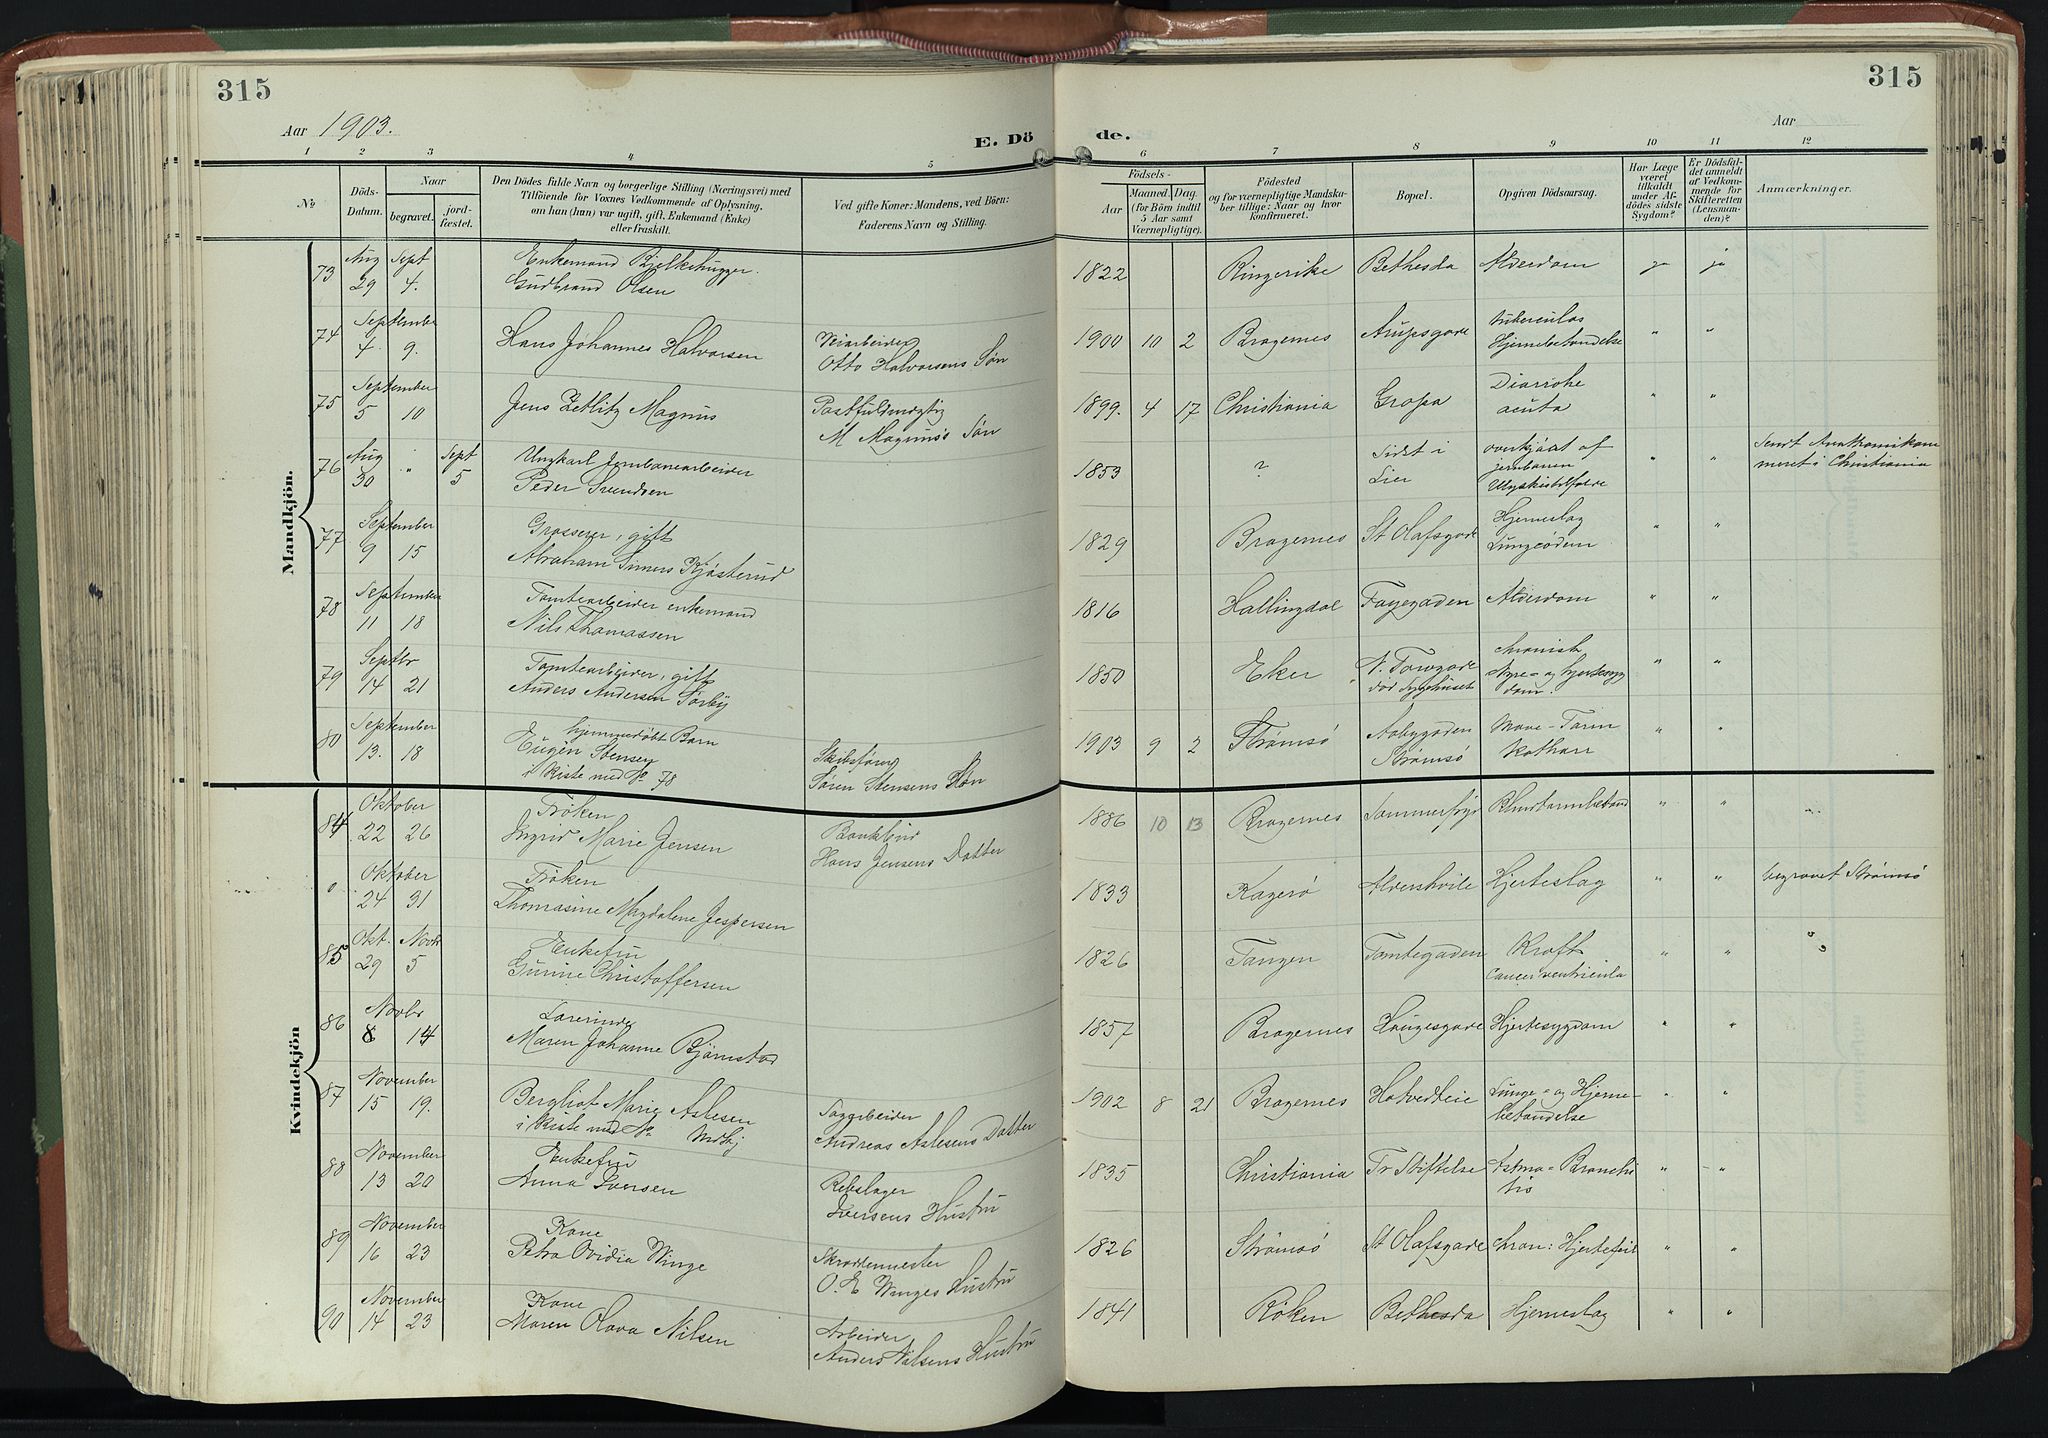 315
315
Aar 1903.
E. Dö
de.
Aar
1 2 3 4 5 6 7 8 9 10 11 12
No
Döds-
Datum.
Naar
begravet.
jord-
fæstet.
Den Dödes fulde Navn og borgerlige Stilling (Næringsvei) med
Tilföiende for Voxnes Vedkommende af Oplysning,
om han (hun) var ugift, gift, Enkemand (Enke)
eller fraskilt.
Ved gifte Koner: Mandens, ved Börn:
Faderens Navn og Stilling.
Födsels-
Aar
Maaned Dag.
(for Börn indtil
5 Aar samt
Værnepligtige).
Födested
og for værnepligtige Mandska-
ber tillige: Naar og hvor
konfirmeret.
Bopæl.
Opgiven Dödsaarsag.
Har Læge
været
tilkaldt
under Af-
dödes sidste
Sygdom?
Er Dödsfal-
det anmeldt
af Vedkom-
mende for
Skifteretten
(Lensman-
den)?
Anmærkninger.
Mandkjön.
73 Aug 29 Sept 4. Enkemand Bjelkehugger.
Gudbrand Olsen
1822 Ringerike Bethesda Alderdom ja ja
74 September 4 9. Hans Johannes Halvorsen
Veiarbeider
Otto Halvorsens Søn
1900 10 2 Bragernes tuberculøs
Hjernebetændelse " "
75 September 5 10 Jens Zetlitz Magnus
Postfuldmægtig
M Magnus's Søn
1899. 4 17 Christiania Gropa Diarrohe
acuta " "
76 Aug 30 " Sept 5 Ungkarl Jernbanearbeider
Peder Svendsen
1853 ? Sidst i
Lier overkjørt af
jernbanen
Ulykkestilfælde " " Sendt
meret i Christiania
77 September 9 15 Grosserer, gift
Abraham Simers Kjøsterud
1829 Bragernes St Olafsgade Hjerneslag
Lungeødem " "
78 September 11 18 Tomtearbeider enkemand
Nils Thomassen
1816 Hallingdal Alderdom " "
79 Septbr 14 21 Tomtearbeider, gift
Anders Andersen Sørby
1850 Eker
død Sygehuset chronisk
Nyre- og hjertesyg
dom. " "
80 September 13. 18 hjemmedøbt Barn
Eugen Stensen
i Kiste med No 78
Skibsfører
Søren Stensens Søn
1903 9 2 Strømsø
Strømsø Mave-Tarm
Kathar " "
Kvindekjön
84 Oktober 22 26 Frøken
Ingrid Marie Jensen
Hans Jensens Datter
1886 10 13 Bragernes Sommerfryd " "
" Oktober 24 31 Frøken
Thomasine Magdalene Jespersen
1833 Kragerø Aldershvile Hjerteslag " " begravet Strømsø
85 Okt. 29 Novbr 5 Enkefru
Gurine Christoffersen
1826 Tangen Tomtegaden Kræft
Cancer ventricula " "
86 Novbr 8 14 Lærerinde
Maren Johanne Bjørnstad
1857 Bragernes Haugesgade Hjertesygdom " "
87 November 15 19. Bergliot Marie Aslesen
i Kiste med No
Sagarbeider
Andreas Aslesens Datter
1902 8 21 Bragernes Hotvedtveie Lunge- og Hjerne-
betændelse " "
88 November 13 20 Enkefru
Anna Iversen
Rebslager
Iversens Hustru
1835 Christiania Tr Stiftelse Astma-Bronchi
tis " "
89 November 16 23 Kone
Petra Ovidia Winge
Skræddermester
O. E Winges Hustru
1826 Strømsø St Olafsgade chron: Hjertefeil " "
90 November 14 23 Kone
Maren Olava Nilsen
Arbeider
Anders Nilsens Hustru
1841 Røken Bethesda Hjerneslag " "